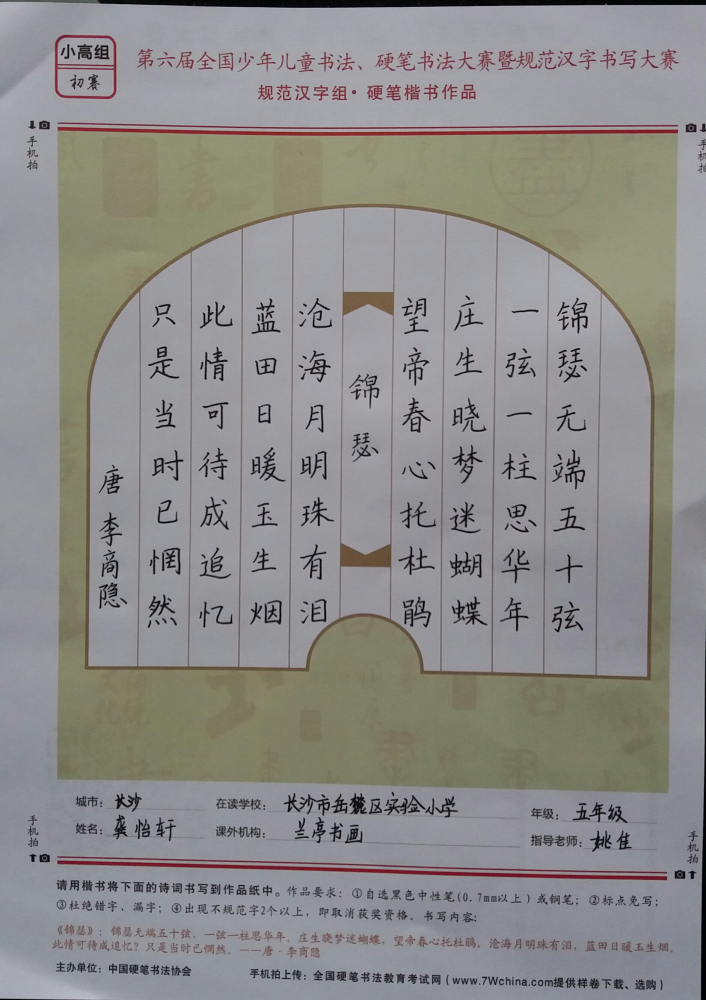 小高组
初赛
第六届全国少年儿童书法、硬笔书法大赛暨规范汉字书写大赛
规范汉字组·硬笔楷书作品
手机拍
手机拍
锦瑟无端五十弦
一弦一柱思华年
庄生晓梦迷蝴蝶
望帝春心托杜鹃
锦瑟
沧海月明珠有泪
蓝田日暖玉生烟
此情可待成追忆
只是当时已惘然
唐 李商隐
城市：长沙
在读学校：长沙市岳麓区实验小学
年级：五年级
姓名：龚怡轩
课外机构：兰亭书画
指导老师：姚佳
手机拍
手机拍
请用楷书将下面的诗词书写到作品纸中。作品要求：①自选黑色中性笔(0.7mm以上)或钢笔；②标点免写；
③杜绝错字、漏字；④出现不规范字2个以上，即取消获奖资格。书写内容：
《锦瑟》：锦瑟无端五十弦，一弦一柱思华年。庄生晓梦迷蝴蝶，望帝春心托杜鹃。沧海月明珠有泪，蓝田日暖玉生烟。
此情可待成追忆？只是当时已惘然。——唐·李商隐
主办单位：中国硬笔书法协会
手机拍上传：全国硬笔书法教育考试网（www.7Wchina.com提供样卷下载、选购）